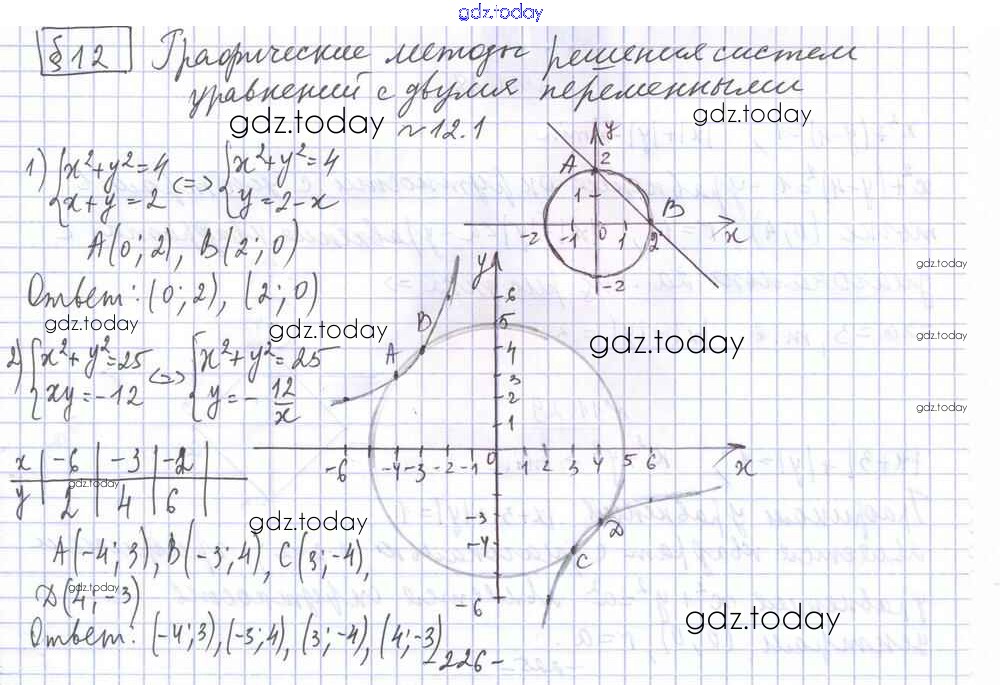 gdz.today
§12 Графические методы решения систем
уравнений с двумя переменными
gdz.today
gdz.today
№12.1
1) {x²+y²=4 <=> {x²+y²=4
{x+y=2 {y=2-x
A(0;2), B(2;0)
Ответ: (0;2), (2;0)
y
A 2
1
B
-2 -1 0 1 2 x
-2
gdz.today
gdz.today
gdz.today
gdz.today
gdz.today
gdz.today
2) {x²+y²=25 <=> {x²+y²=25
{xy=-12 {y=-12/x
x | -6 | -3 | -2
y | 2 | 4 | 6
gdz.today
gdz.today
A(-4;3), B(-3;4), C(3;-4),
D(4;-3)
gdz.today
Ответ: (-4;3), (-3;4), (3;-4), (4;-3)
y
6
5
B
4
A
3
2
1
-6 -4 -3 -2 -1 0 1 2 3 4 5 6 x
-3
D
-4
C
-6
gdz.today
-226-